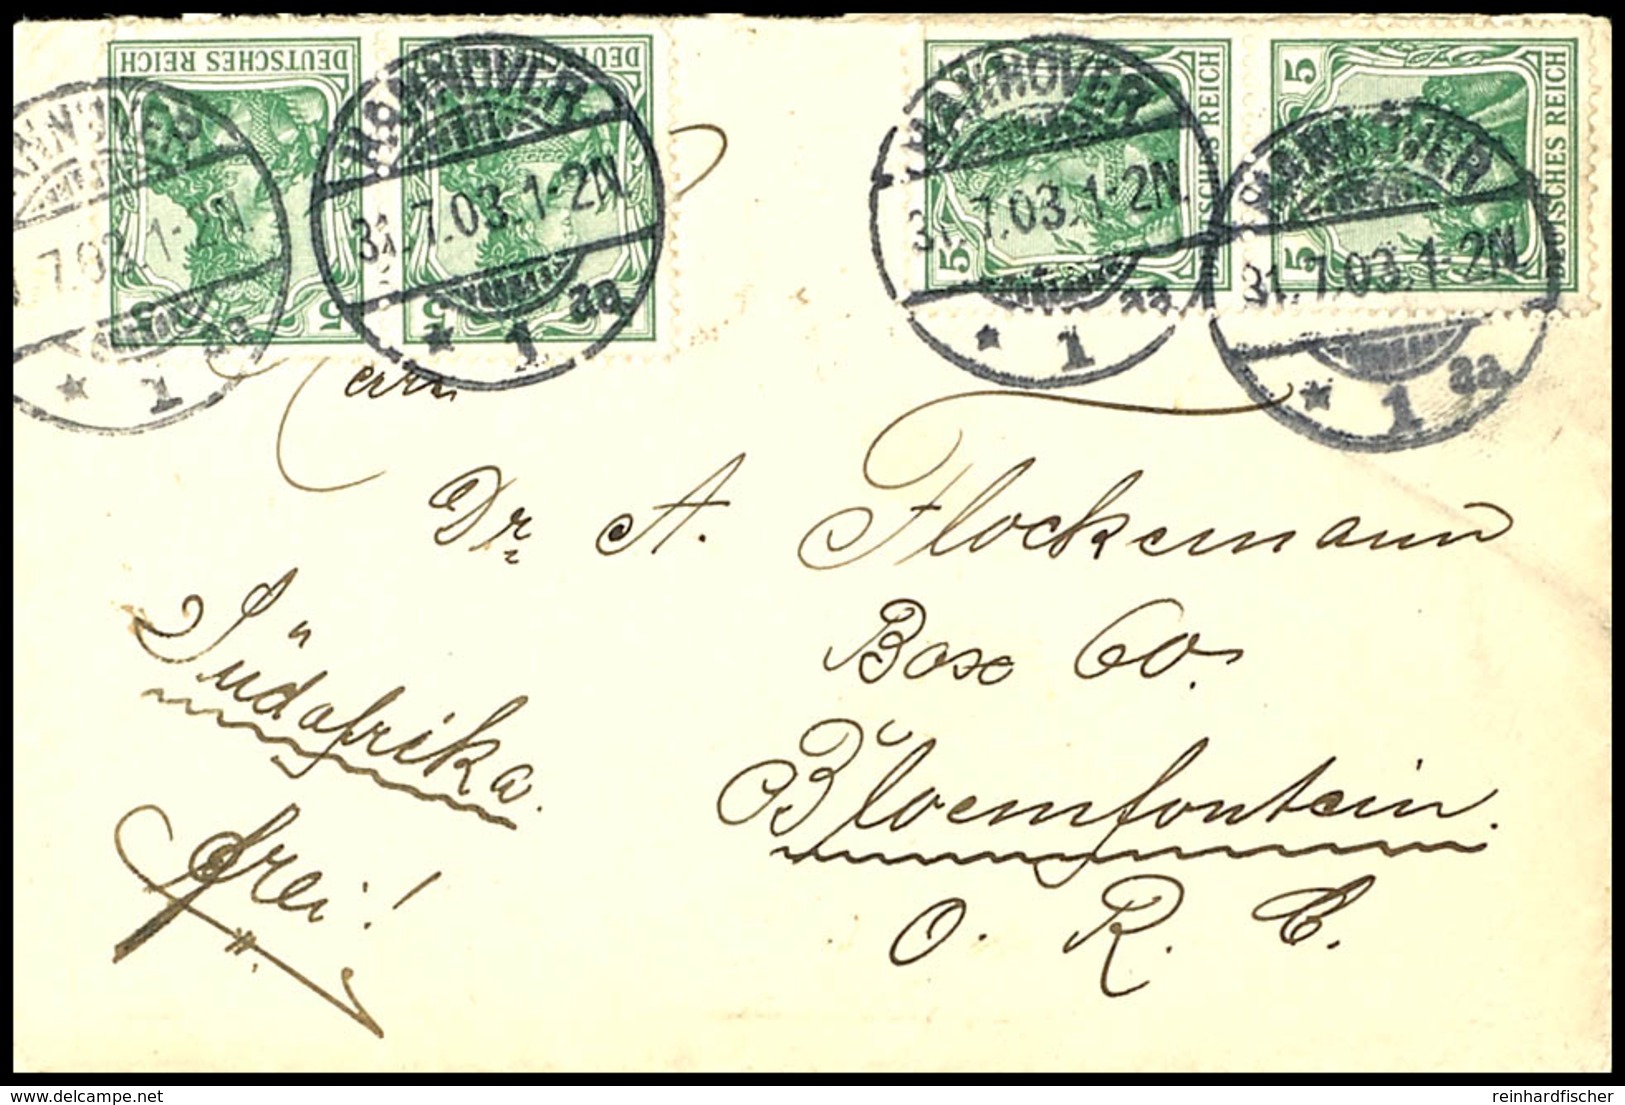 DEUTSCHES REICH
DEUTSCHES REICH
DEUTSCHES REICH
DEUTSCHES REICH
5
5
5
5
5
5
5
HANNOVER
7.03.1-2N.
* 1 aa
HANNOVER
31.7.03.1-2N
* 1 aa
HANNOVER
31.7.03.1-2N.
* 1 aa
HANNOVER
31.7.03.1-2N.
* 1 aa
Herrn
Dr. A. Flockemann
Box 60.
Bloemfontein.
O. R. C.
Südafrika.
frei!
reinhardfischer